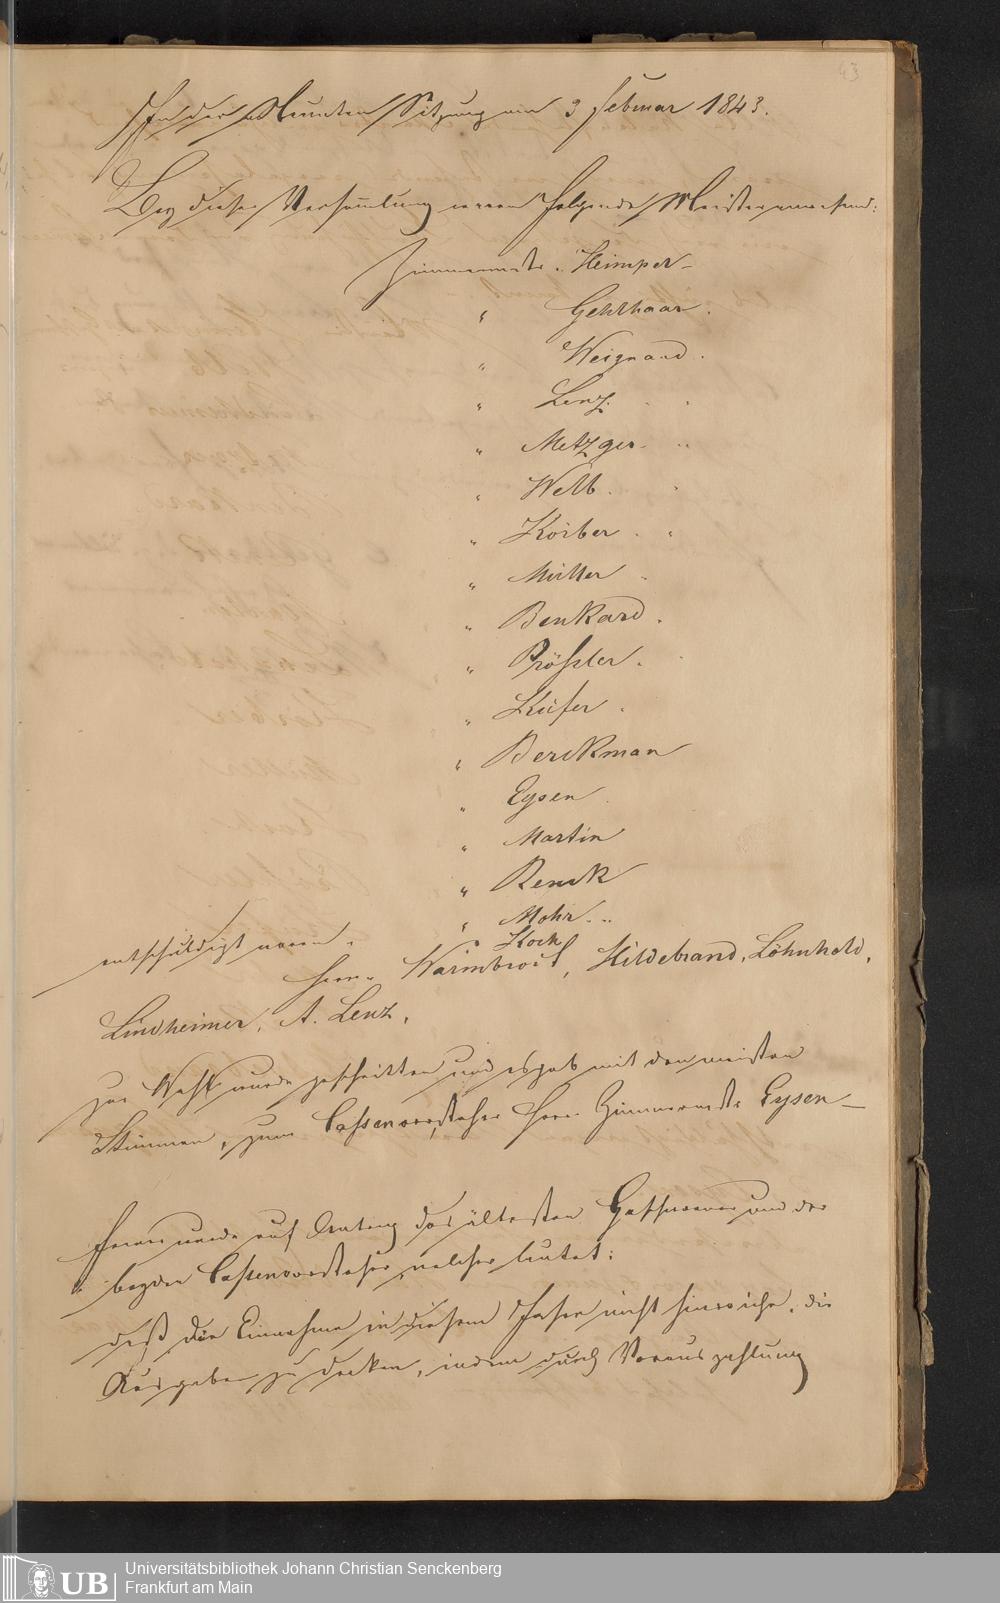 43
In der Neunten Sitzung am 3 Februar 1843.
Bey dieser Versammlung waren folgende Meister anwesend:
Zimmermstr. Heimper
" Gehlhaar.
" Weignand.
" Lenz.
" Metzger.
" Welb.
" Körber.
" Müller
" Benkard.
" Prößler.
" Küfer.
" Berckman
" Eysen
" Martin
" Renck
" Mohr.
" Koch
entschuldigt waren.
Herrn Warmbrod, Hildebrand, Löhnhold,
Lindheimer, A. Lenz,
zur Wahl wurde geschritten und es gab mit den meisten
Stimmen, zum Cassenvorsteher Herrn Zimmermstr Eysen
Ferner wurde auf Antrag des ältesten und der
beyden Cassenvorsteher, welcher lautet:
daß die Einnahme in diesem Jahre nicht hinreiche, die
Ausgaben zu decken, indem durch Vorauszahlung
Universitätsbibliothek Johann Christian Senckenberg
Frankfurt am Main
UB